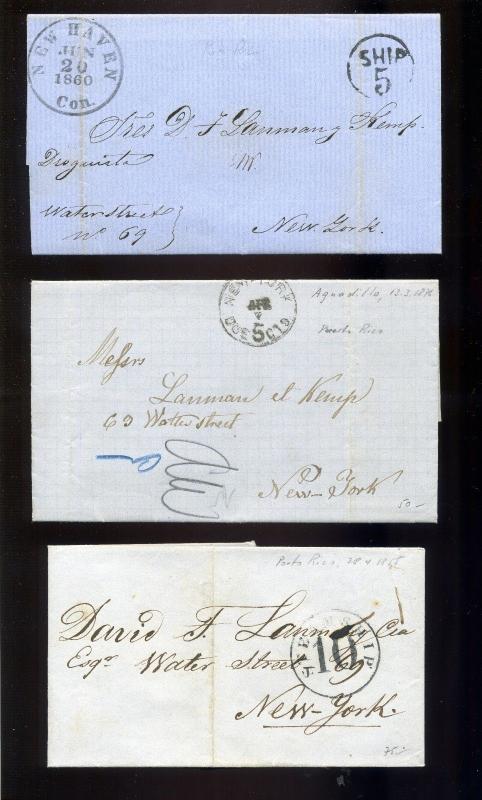 NEW HAVEN
JUN
20
1860
Con.
SHIP
5
Sres D. T Lanman y Kemp.
Droguista
Water Street
nº 69
New York.
NEW YORK
APR
7
DUE 5 CTS
Aguadilla, 13.3.
Puerto Rico
Messrs
Lanman et Kemp
69 Watter street
New-York
50-
Porto Rico, 28 4
David T. Lanman Cia
Esqr Water Street 69
STEAMSHIP
10
New-York.
75-